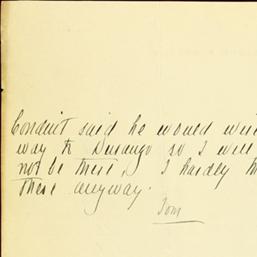 Conduit said he would
way to Durango so I will
not be there, I hardly
there anyway.
Tom